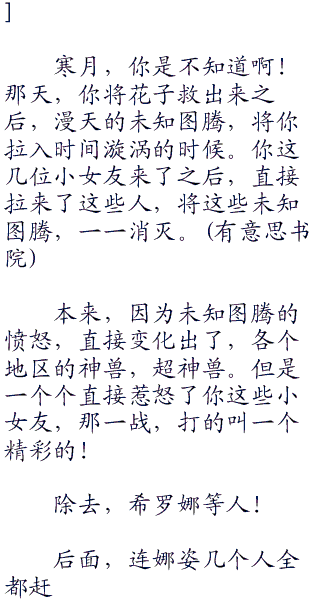 ]
寒月，你是不知道啊！
那天，你将花子救出来之
后，漫天的未知图腾，将你
拉入时间漩涡的时候。你这
几位小女友来了之后，直接
拉来了这些人，将这些未知
图腾，一一消灭。(有意思书
院)
本来，因为未知图腾的
愤怒，直接变化出了，各个
地区的神兽，超神兽。但是
一个个直接惹怒了你这些小
女友，那一战，打的叫一个
精彩的！
除去，希罗娜等人！
后面，连娜姿几个人全
都赶